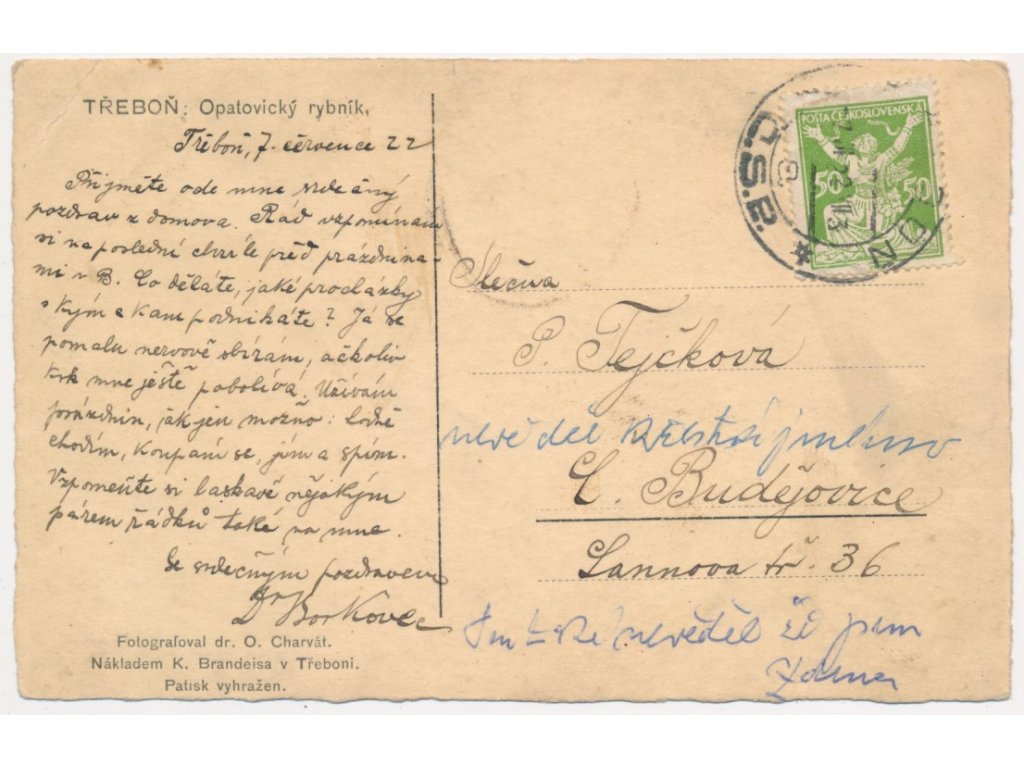 TŘEBOŇ: Opatovický rybník,
Třeboň, 7. července 22
Přijměte ode mne srdečný
pozdrav z domova. Rád vzpomínám
si na poslední chvíle před prázdnina-
mi v B. Co děláte, jaké procházky
s kým a kam podnikáte? Já se
pomalu nervově sbírám, ačkoliv
krk mne ještě pobolívá. Užívám
prázdnin, jak jen možno: Lodně
chodím, koupám se, jím a spím.
Vzpomeňte si laskavě nějakým
párem řádků také na mne.
Se srdečným pozdravem
Dr Borkovec
Fotografoval dr. O. Charvát.
Nákladem K. Brandeisa v Třeboni.
Patisk vyhražen.
POŠTA ČESKOSLOVENSKÁ
50 50
Slečna
P. Tejčková
nevěděl křestní jméno
Č. Budějovice
Lannova tř. 36
nevěděl že jsem
Zdena